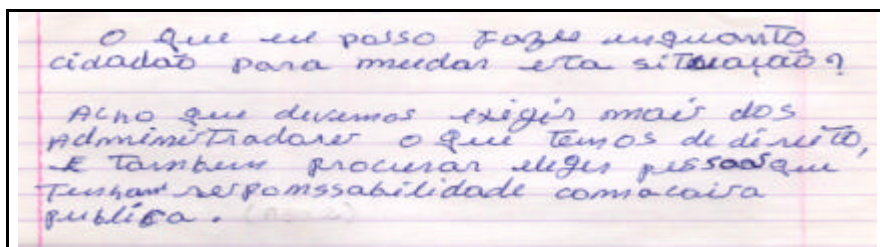 O que eu posso fazer enquanto
cidadão para mudar esta situação?
Acho que devemos exigir mais dos
Administradores o que temos de direito,
E Também procurar eleger pessoas que
Tenham responssabilidade com a coisa
publica.